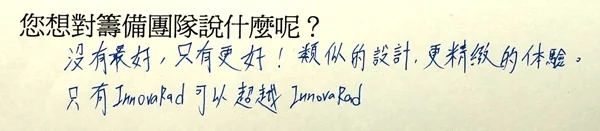 您想對籌備團隊說什麼呢？
沒有最好，只有更好！類似的設計，更精緻的体驗。
只有InnovaRad可以超越InnovaRad